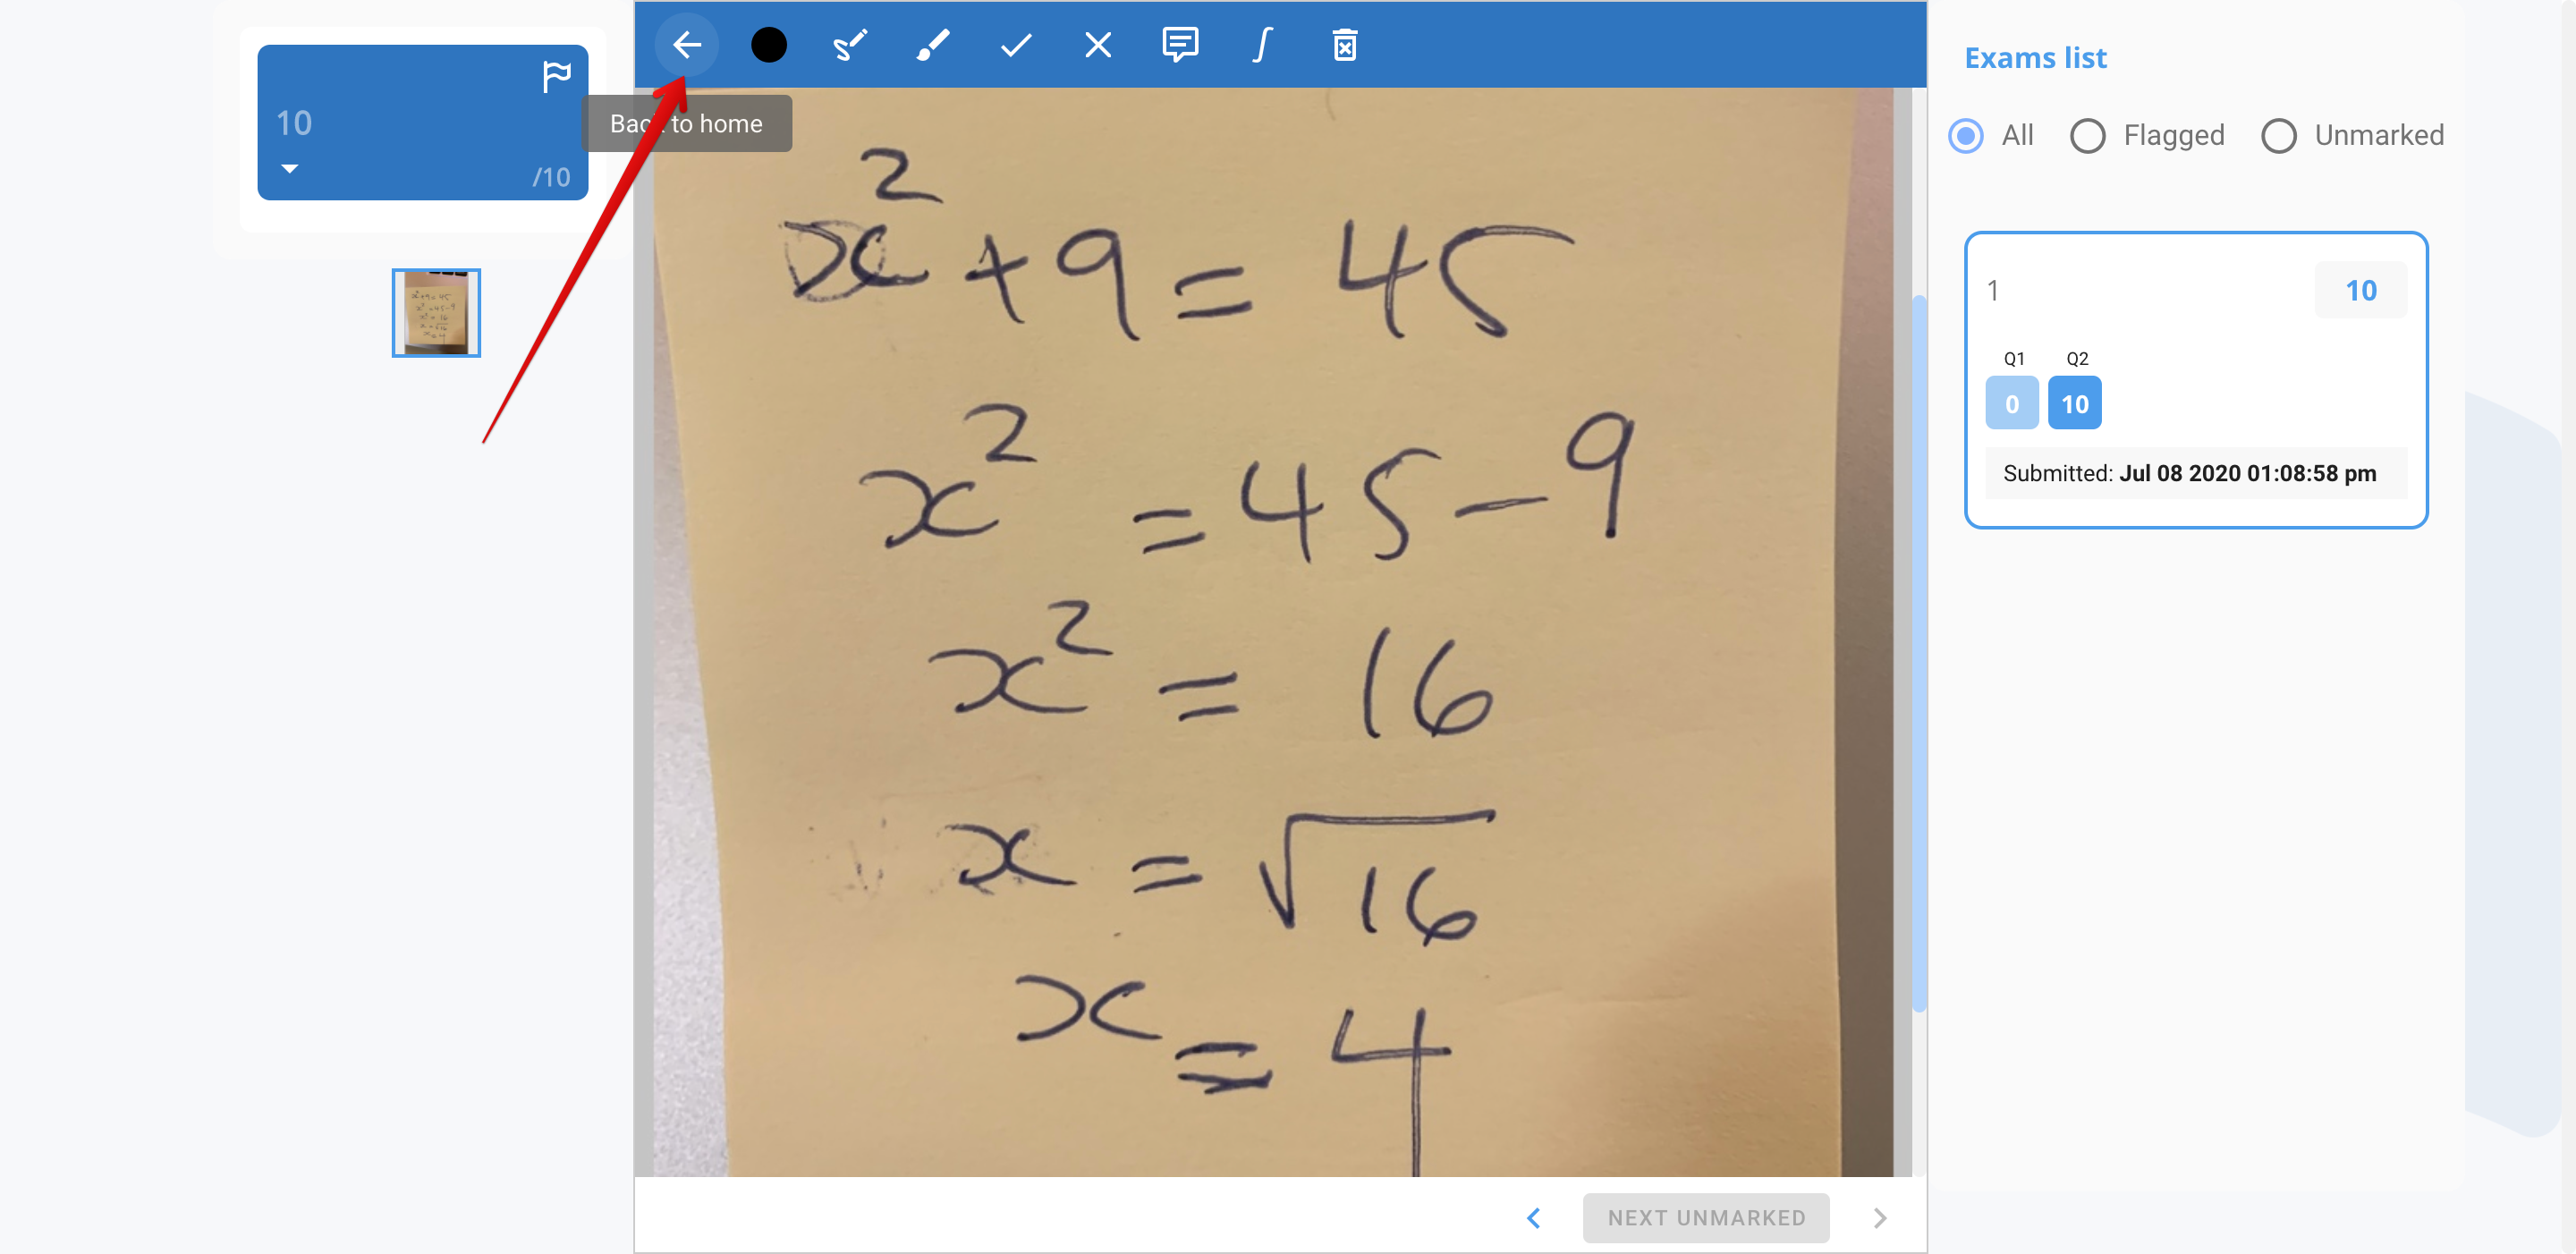 10
/10
Back to home
x² + 9 = 45
x² = 45 - 9
x² = 16
x = √16
x = 4
NEXT UNMARKED
Exams list
All Flagged Unmarked
1 10
Q1 Q2
0 10
Submitted: Jul 08 2020 01:08:58 pm